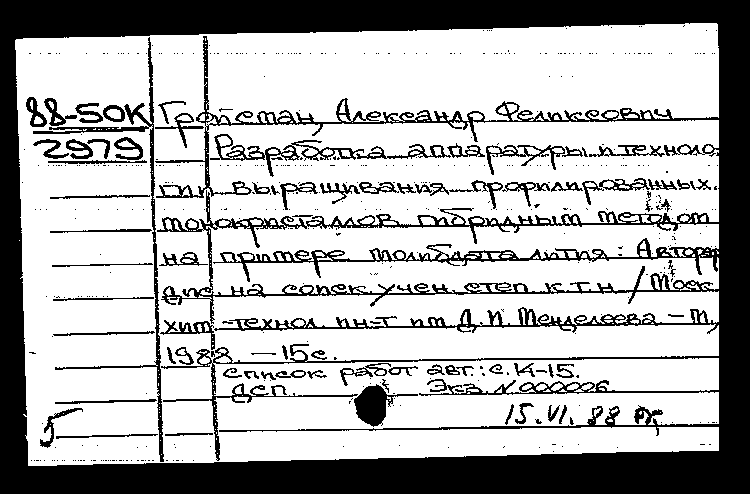 88-50К Гройсман, Александр Феликсович
2979 Разработка аппаратуры и техноло-
гии выращивания профилированных
монокристаллов гибридным методом
на примере молибдата лития: Автореф
дис. на соиск. учен. степ. к.т.н. / Моск
хим.-технол. ин-т им. Д.И. Менделеева. – М.,
1988. – 15 с.
Список работ авт.: с. 14-15.
ДСП. Экз. N 000006
5 15.VI.88